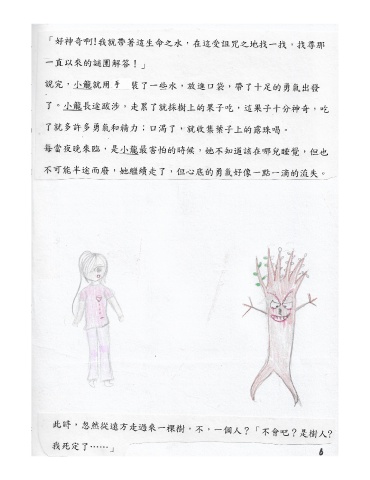 「好神奇啊!我就帶著這生命之水，在這受詛咒之地找一找，找尋那
一直以來的謎團解答！」
說完，小龍就用 裝了一些水，放進口袋，帶了十足的勇氣出發
了。小龍長途跋涉，走累了就採樹上的果子吃，這果子十分神奇，吃
了就多許多勇氣和精力；口渴了，就收集葉子上的露珠喝。
每當夜晚來臨，是小龍最害怕的時候，她不知道該在哪兒睡覺，但也
不可能半途而廢，她繼續走了，但心底的勇氣好像一點一滴的流失。
此時，忽然從遠方走過來一棵樹，不，一個人？「不會吧？是樹人？
我死定了……」
6